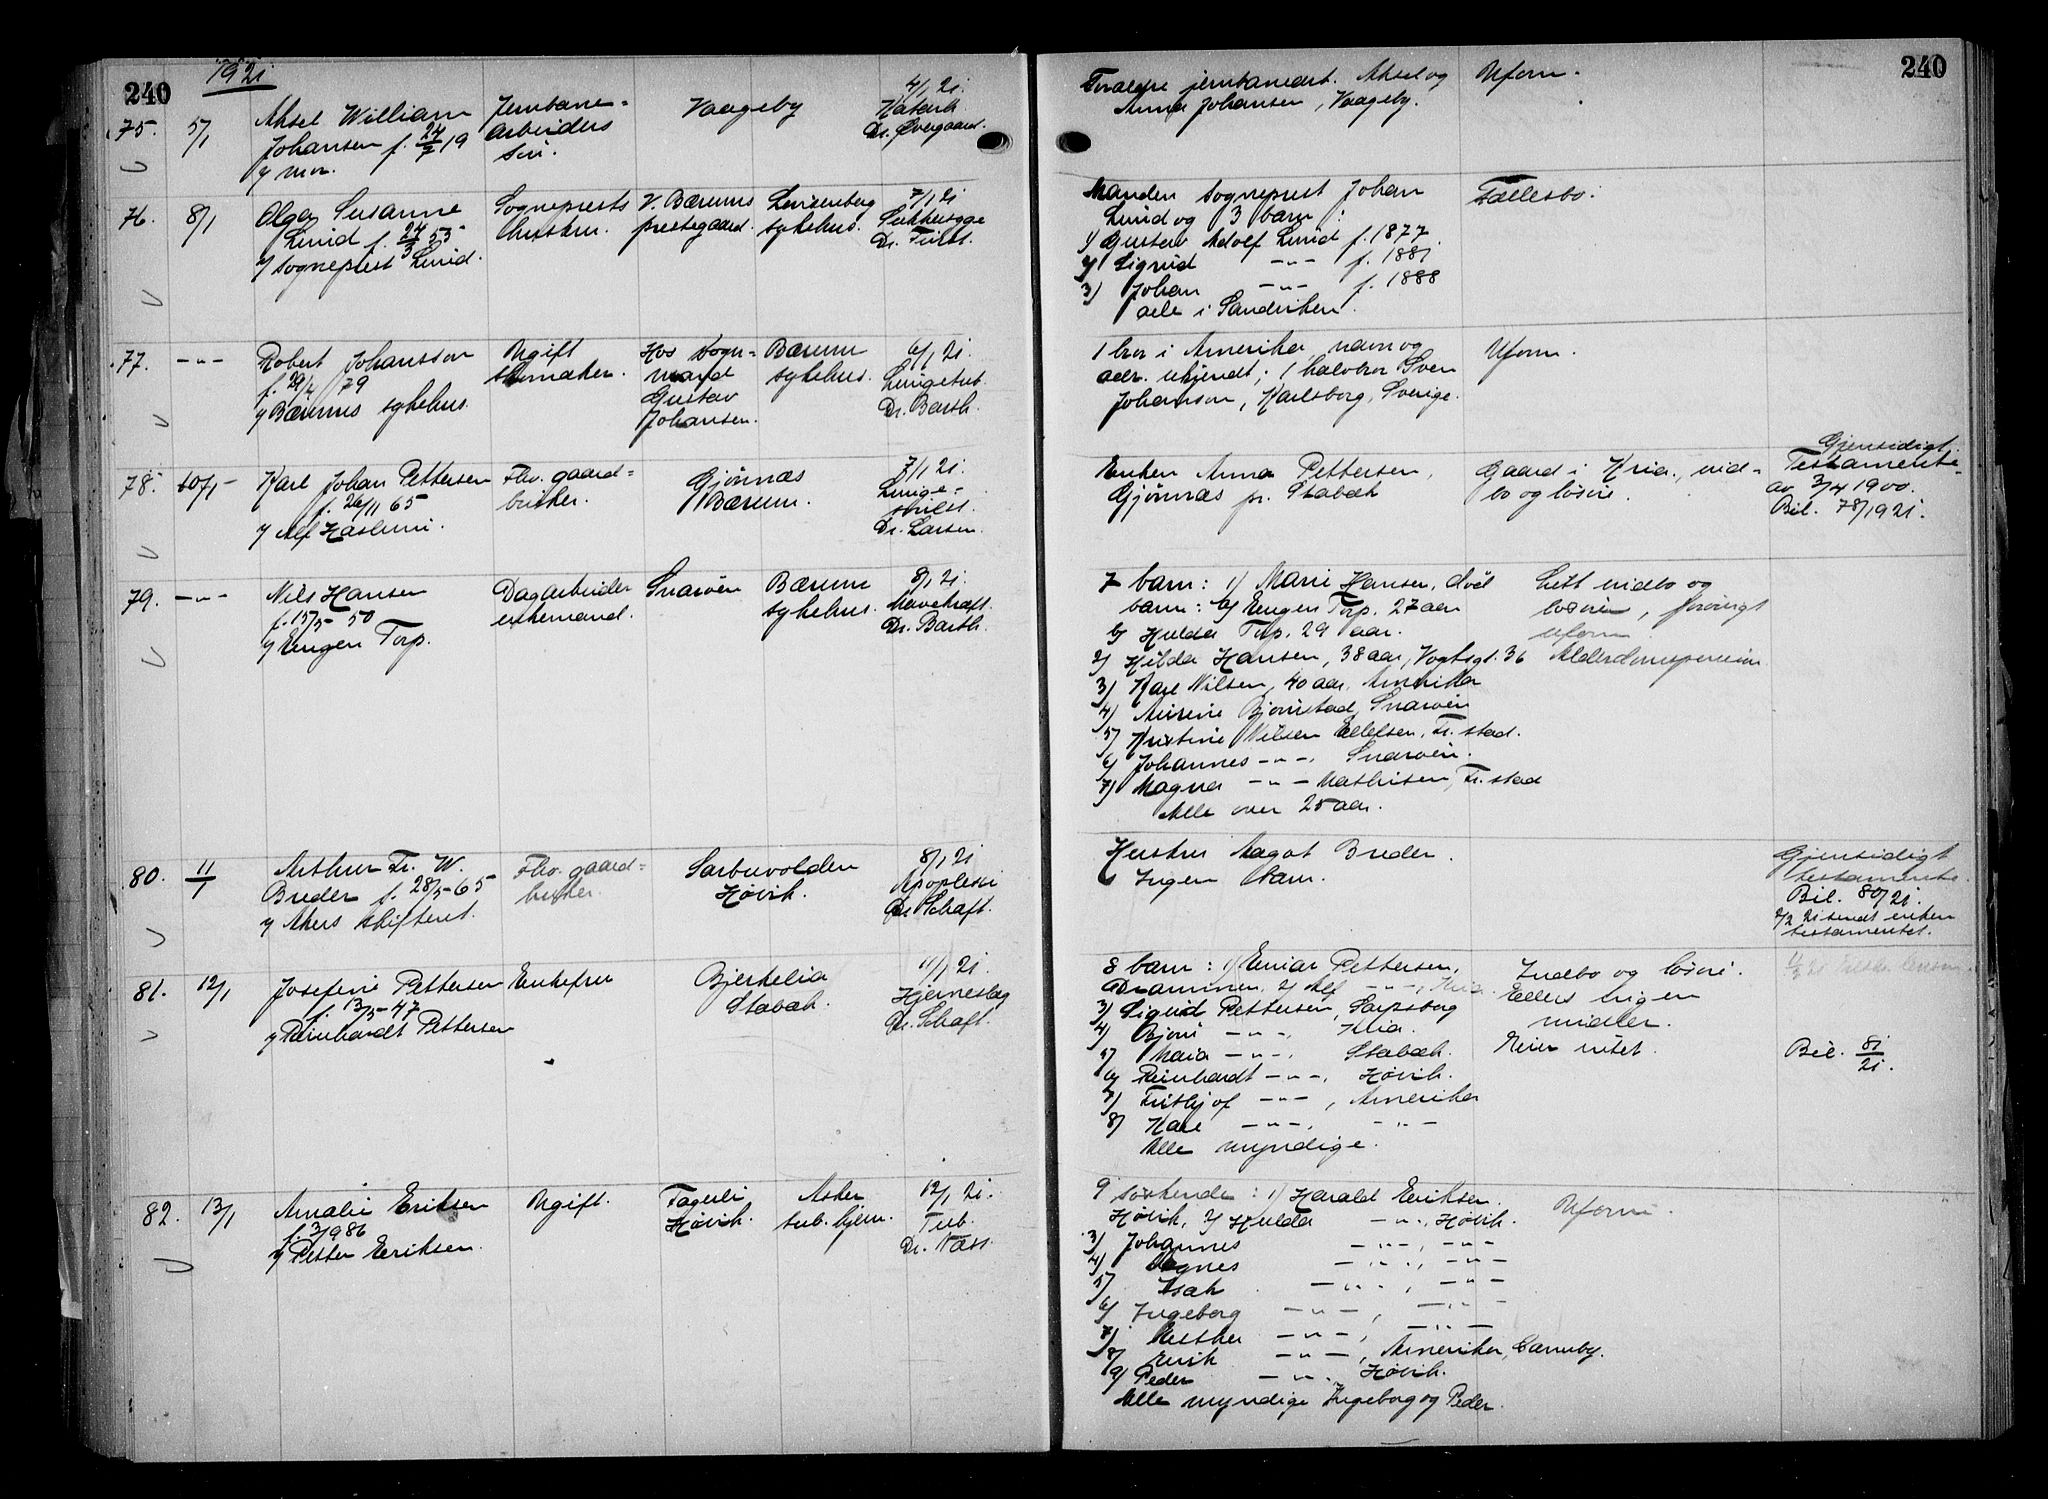 240
1921
75. 5/1
Aksel William
Johansen f. 24/7 19
v/ mor.
Jernbane=
arbeiders
søn.
Vaageby
4/1 21.
Katarrh
Dr. Overgaard.
76. 8/1
Olga Susanne
Lund f. 24/3 55
v/ sogneprest Lund.
Sogneprests
hustru.
V. Bærums
prestegaard.
Lovisenberg
sykehus.
7/1 21
Sukkersyge
Dr. Fürst.
77. —"—
Robert Johansson
f. /4 79
v/ Bærums sykehus.
Ugift
skomaker.
Hos sogn=
mand
Gustav
Johansen.
Bærum
sykehus.
6/1 21.
Lungetub.
Dr. Barth.
78. 10/1
Karl Johan Pettersen
f. 26/11 65
v/ Alf Haslum.
Fhv. gaard=
bruker.
Gjønnæs
Bærum.
7/1 21.
Lunge-
Dr. Larsen.
79. —"—
Nils Hansen
f. 15/5-50
v/ Eugen Torp.
Dagarbeider
enkemand.
Snarøen
Bærum
sykehus.
8/1 21.
Mavekræft.
Dr. Barth.
80. 11/1
Arthur Fr. W.
Breder f. 28/5-65
v/ Akers skifteret.
Fhv. gaard=
bruker.
Sarbuvolden
Høvik.
8/1 21
Apoplexi
Dr. Schaft.
81. 12/1
Josefine Pettersen
f. 13/5-47
v/ Reinhardt Pettersen
Enkefru
Bjerkelia
Stabæk.
11/1 21.
Hjerneslag
Dr. Schaft.
82. 13/1
Amalie Eriksen
f. 3/9 86
v/ Petter Eriksen.
Ugift.
Fagerli
Høvik.
Asker
tub. hjem.
12/1 21.
Tub.
Dr. Næss.
240
Forældre jernbanearb. Aksel og
Anna Johansen, Vaageby.
Uform.
Manden sogneprest Johan
Lund og 3 barn:
1) Gustav Adolf Lund f. 1877.
2) Sigrid —"— f. 1881
3) Johan —"— f. 1888
alle i Sandviken.
Fællesbo.
1 bror i Amerika, navn og
adr. ukjendt; 1 halvbror Sven
Johanson, Karlsborg, Sverige.
Uform.
Enken Anna Pettersen,
Gjønnæs pr. Stabæk
Gaard i Kria., ind=
bo og løsøre.
Gjensidigt
Testamente
av 3/4 1900.
Bil. 78/1921.
7 barn: 1) Marie Hansen, død
barn: a) Eugen Torp. 27 aar
b) Hulda Torp. 29 aar.
2) Hilda Hansen, 38 aar, Vogtsgt. 36
3) Karl Nilsen, 40 aar, Amerika
4) Bjørnstad, Snarøen
5) Kristine Nilsen Ellefsen, Fr. stad.
6) Johannes —"—, Snarøen.
7) Magna —"— Mathisen, Fr. stad
Alle over 25 aar.
Litt indbo og
løsøre, forøvrigt
uform.
Alderdomspension
Hustru Magot Breder.
Ingen barn.
Gjensidigt
testamente.
Bil. 80/21.
2/2 21 sendt enken
testamentet.
8 barn: 1) Einar Pettersen,
Drammen, 2) Alf —"—, Kria.
3) Sigurd Pettersen, Sarpsborg
4) Bjørn —"—, Kria.
5) Maia —"—, Stabæk.
6) Reinhardt —"—, Høvik.
7) Fridtjof —"—, Amerika
8) Karl —"—, —"—
Alle myndige.
Indbo og løsøre.
Ellers ingen
midler.
Eier intet.
Bil. 81/21.
9 søskende: 1) Harald Eriksen.
Høvik, 2) Hulda —"—, Høvik.
3) Johannes —"—, —"—
4) Agnes —"—, —"—
5) Isak —"—, —"—
6) Ingeborg —"—, —"—
7) —"—, —"—
8) Erik —"—, Amerika,
9) Peder —"—, Høvik.
Alle myndige Ingeborg og Peder.
Uform.